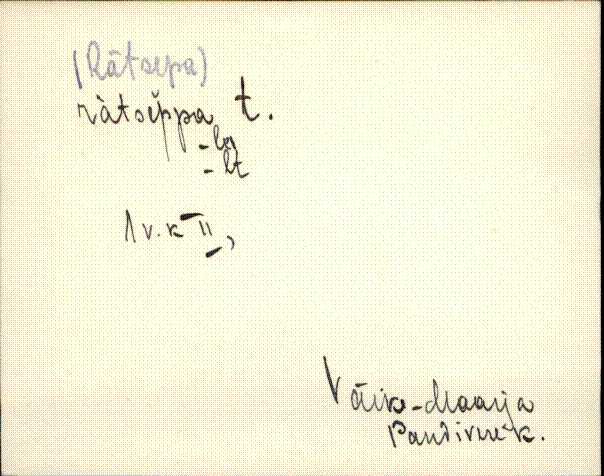 (Rätsepa)
rätsĕppa, t.
-le
-lt
1 v. k II,
Väike-Maarja
Pandivere k.